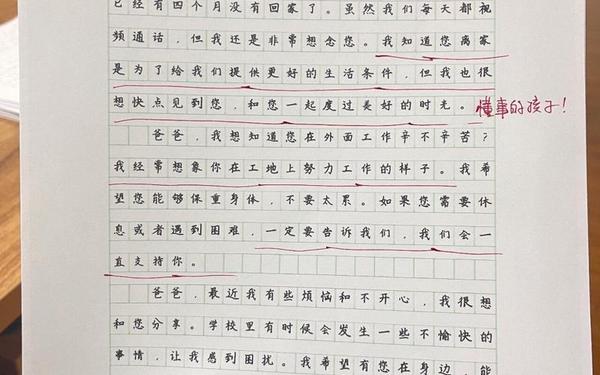 已经有四个月没有回家了。虽然我们每天都视
频通话，但我还是非常想念您。我知道您离家
是为了给我们提供更好的生活条件，但我也很
想快点见到您，和您一起度过美好的时光。
懂事的孩子！
爸爸，我想知道您在外面工作辛不辛苦？
我经常想象你在工地上努力工作的样子。我希
望您能够保重身体，不要太累。如果您需要休
息或者遇到困难，一定要告诉我们，我们会一
直支持你。
爸爸，最近我有些烦恼和不开心，我很想
和您分享。学校里有时候会发生一些不愉快的
事情，让我感到困扰。我希望有您在身边，能